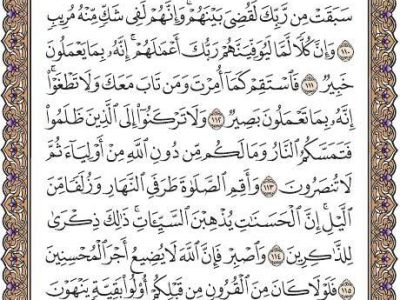 سَبَقَتْ مِن رَّبِّكَ لَقُضِيَ بَيْنَهُمْ ۚ وَإِنَّهُمْ لَفِي شَكٍّ مِّنْهُ مُرِيبٍ
١١٠ وَإِنَّ كُلًّا لَّمَّا لَيُوَفِّيَنَّهُمْ رَبُّكَ أَعْمَٰلَهُمْ ۚ إِنَّهُۥ بِمَا يَعْمَلُونَ
خَبِيرٌ ١١١ فَٱسْتَقِمْ كَمَآ أُمِرْتَ وَمَن تَابَ مَعَكَ وَلَا تَطْغَوْا۟ ۚ
إِنَّهُۥ بِمَا تَعْمَلُونَ بَصِيرٌ ١١٢ وَلَا تَرْكَنُوٓا۟ إِلَى ٱلَّذِينَ ظَلَمُوا۟
فَتَمَسَّكُمُ ٱلنَّارُ وَمَا لَكُم مِّن دُونِ ٱللَّهِ مِنْ أَوْلِيَآءَ ثُمَّ
لَا تُنصَرُونَ ١١٣ وَأَقِمِ ٱلصَّلَوٰةَ طَرَفَيِ ٱلنَّهَارِ وَزُلَفًا مِّنَ
ٱلَّيْلِ ۚ إِنَّ ٱلْحَسَنَٰتِ يُذْهِبْنَ ٱلسَّيِّـَٔاتِ ۚ ذَٰلِكَ ذِكْرَىٰ
لِلذَّٰكِرِينَ ١١٤ وَٱصْبِرْ فَإِنَّ ٱللَّهَ لَا يُضِيعُ أَجْرَ ٱلْمُحْسِنِينَ
١١٥ فَلَوْلَا كَانَ مِنَ ٱلْقُرُونِ مِن قَبْلِكُمْ أُو۟لُوا۟ بَقِيَّةٍ يَنْهَوْنَ